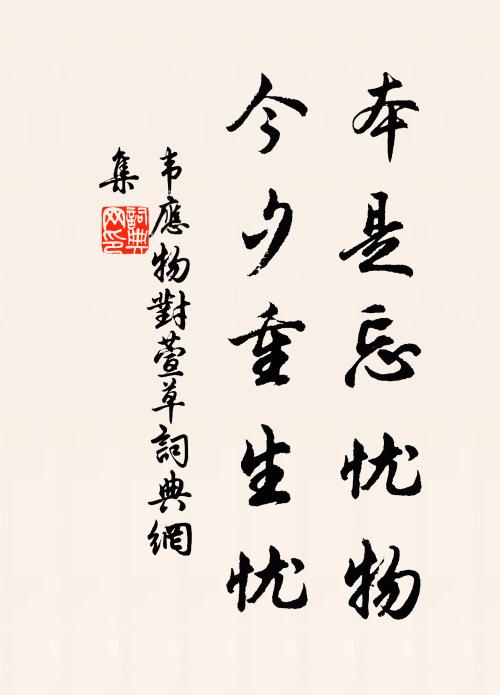 本是忘忧物
今夕重生忧
韦應物對萱草詞典網
集
詞典网印